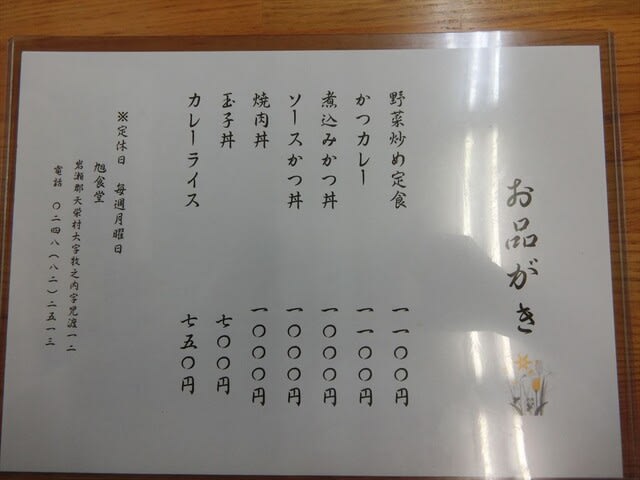 お品がき
野菜炒め定食 一一〇〇円
かつカレー 一一〇〇円
煮込みかつ丼 一〇〇〇円
ソースかつ丼 一〇〇〇円
焼肉丼 一〇〇〇円
玉子丼 七〇〇円
カレーライス 七五〇円
※定休日 毎週月曜日
旭食堂
岩瀬郡天栄村大字牧之内字児渡一二
電話 〇二四八(八二)二五一三